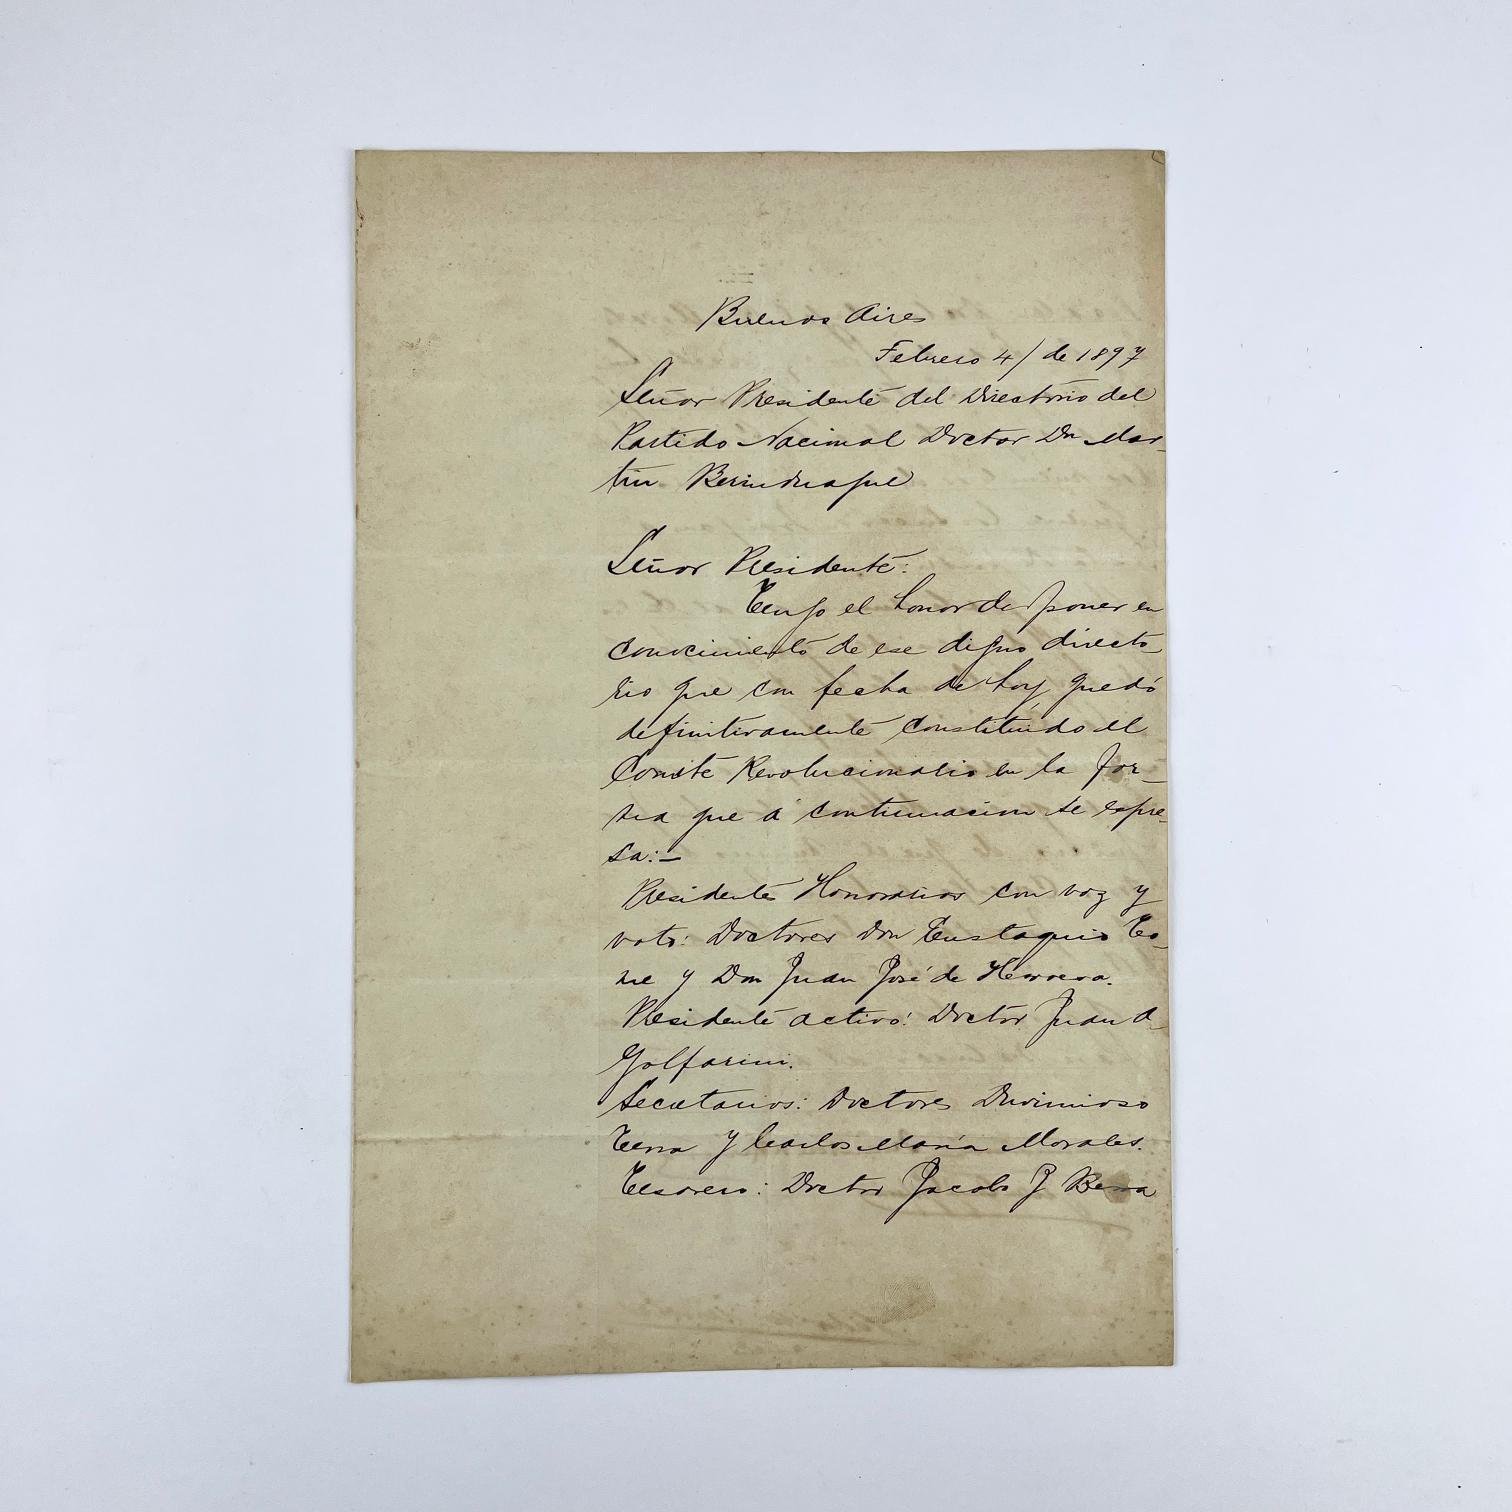 Buenos Aires
Febrero 4/ de 1897
Señor Presidente del Directorio del
Partido Nacional Doctor Dn Mar-
tin Berinduague
Señor Presidente:
Tengo el honor de poner en
conocimiento de ese digno directo-
rio que con fecha de hoy quedó
definitivamente constituido el
Comité Revolucionario en la for-
ma que á continuacion se espre-
sa:—
Presidentes Honorarios con voz y
voto: Doctores Don Eustaquio To-
me y Don Juan José de Herrera.
Presidente activo: Doctor Juan A
Golfarini.
Secretarios: Doctores Duvimioso
Terra y Carlos María Morales.
Tesorero: Doctor Jacobo Z Berra